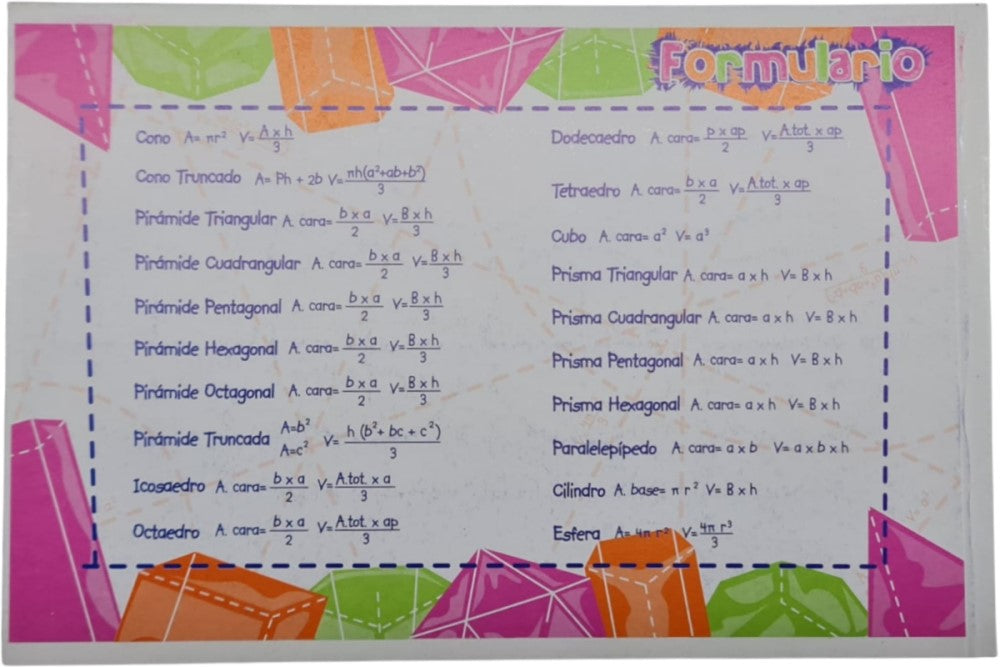 Formulario
Cono A= πr² V= A x h / 3
Cono Truncado A= Ph + 2b V= πh(a²+ab+b²) / 3
Pirámide Triangular A. cara= b x a / 2 V= B x h / 3
Pirámide Cuadrangular A. cara= b x a / 2 V= B x h / 3
Pirámide Pentagonal A. cara= b x a / 2 V= B x h / 3
Pirámide Hexagonal A. cara= b x a / 2 V= B x h / 3
Pirámide Octagonal A. cara= b x a / 2 V= B x h / 3
Pirámide Truncada A=b² A=c² V= h (b²+ bc + c²) / 3
Icosaedro A. cara= b x a / 2 V= A.tot. x a / 3
Octaedro A. cara= b x a / 2 V= A.tot. x ap / 3
Dodecaedro A. cara= p x ap / 2 V= A.tot. x ap / 3
Tetraedro A. cara= b x a / 2 V= A.tot. x ap / 3
Cubo A. cara= a² V= a³
Prisma Triangular A. cara= a x h V= B x h
Prisma Cuadrangular A. cara= a x h V= B x h
Prisma Pentagonal A. cara= a x h V= B x h
Prisma Hexagonal A. cara= a x h V= B x h
Paralelepípedo A. cara= a x b V= a x b x h
Cilindro A. base= π r² V= B x h
Esfera A= 4π r² V= 4π r³ / 3